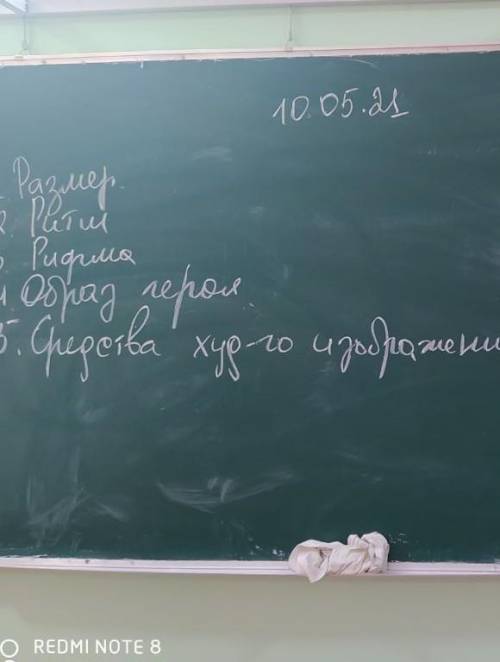 10.05.21
Размер.
2. Ритм
3 Рифма
4 Образ героя.
5. Средства худ-го изображени
REDMI NOTE 8